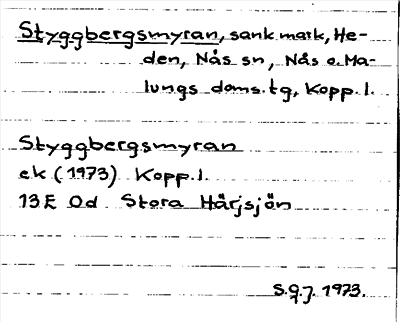 Styggbergsmyran, sank mark, He-
den, Nås sn, Nås o. Ma-
lungs doms. tg, Kopp. l.
Styggbergsmyran
ek (1973) Kopp. l.
13E 0d Stora Härjsjön
S.G.J. 1973.